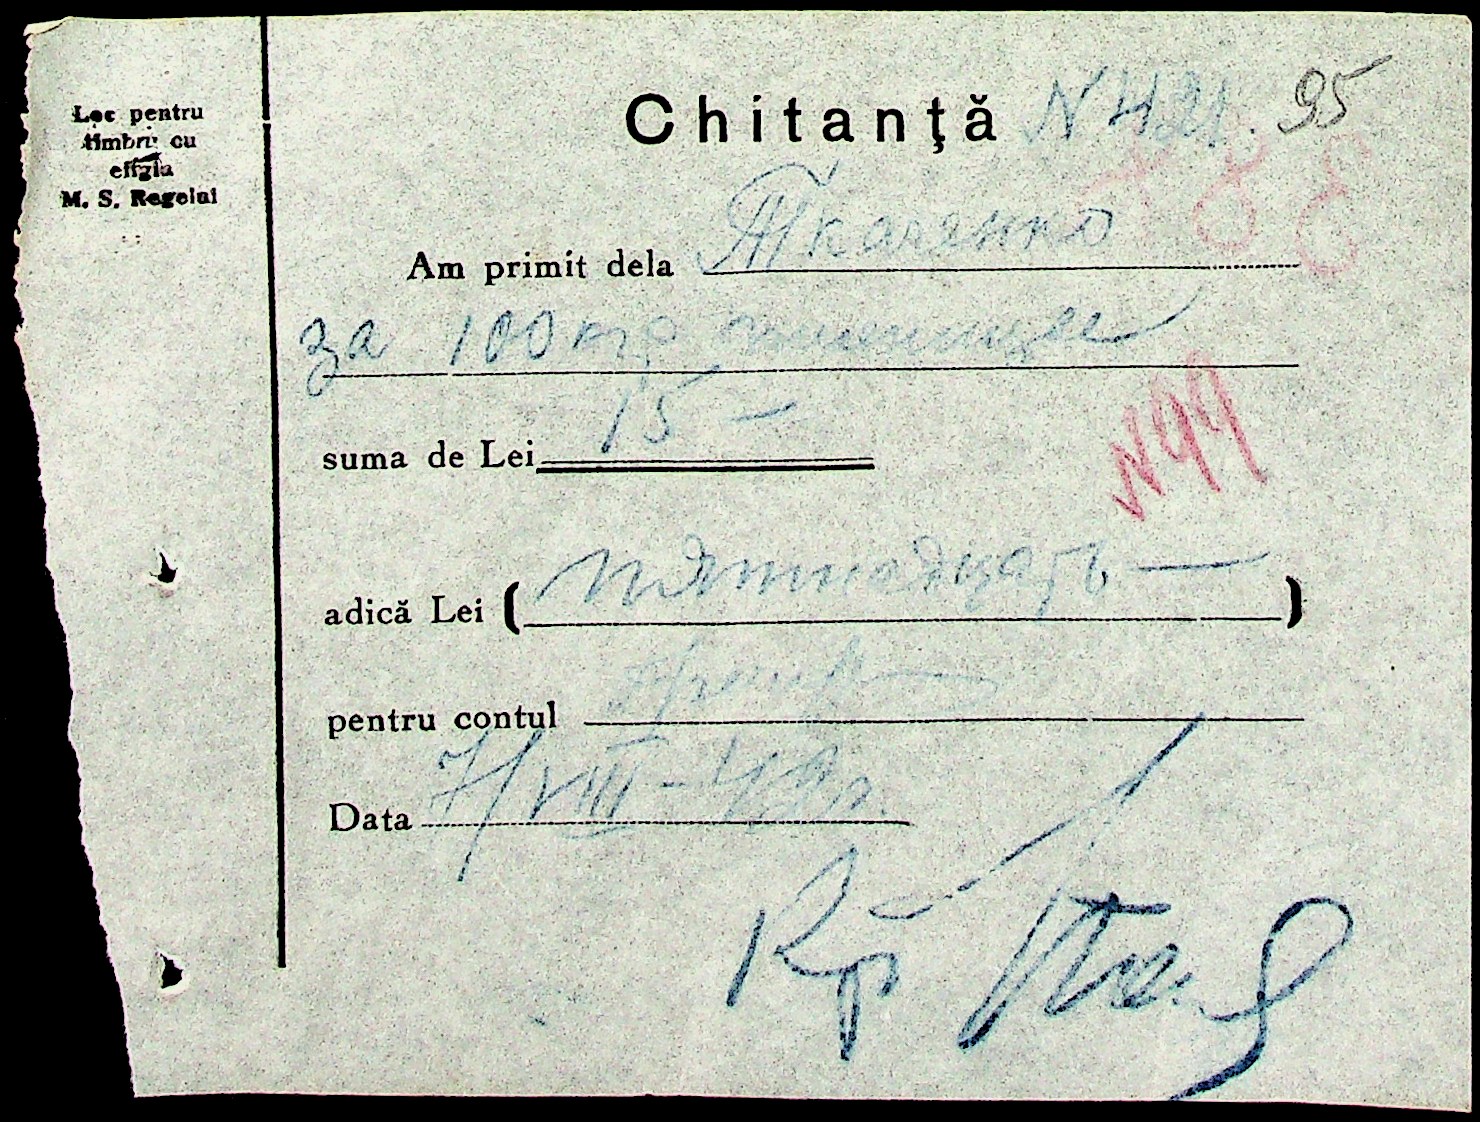 Loc pentru
timbru cu
efigia
M. S. Regelui
Chitanţă N 421. 95
Am primit dela Ткаченко
за 100 кгр пшеницы
suma de Lei 15 –
N 99
adică Lei (пятнадцать —)
pentru contul
Data 7/VIII–42г.